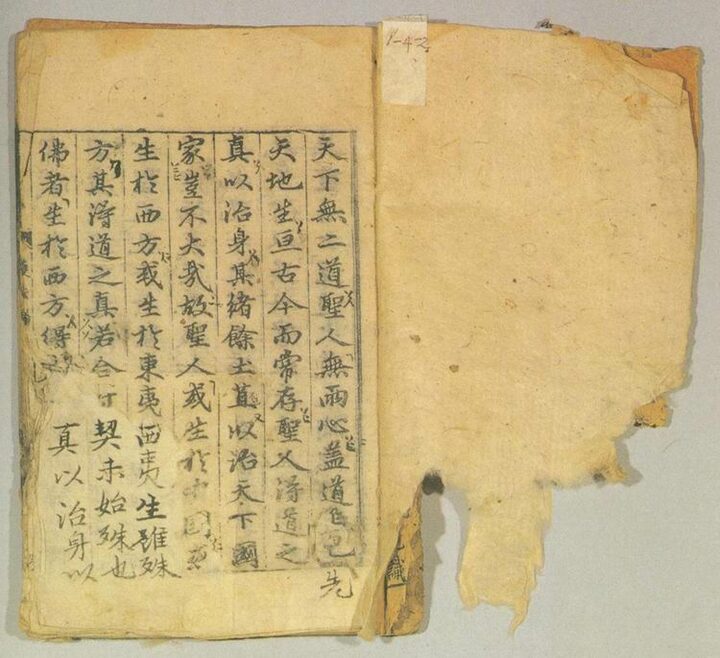 天下無二道聖人無兩心盖道先
天地生亘古今而常存聖人淂道之
真以治身其緖餘土苴以治天下國
家豈不大哉故聖人或生於中國
生於西方或生於東夷西夷生雖殊
方其淂道之真若合契未始殊也
佛者生於西方得真以治身以